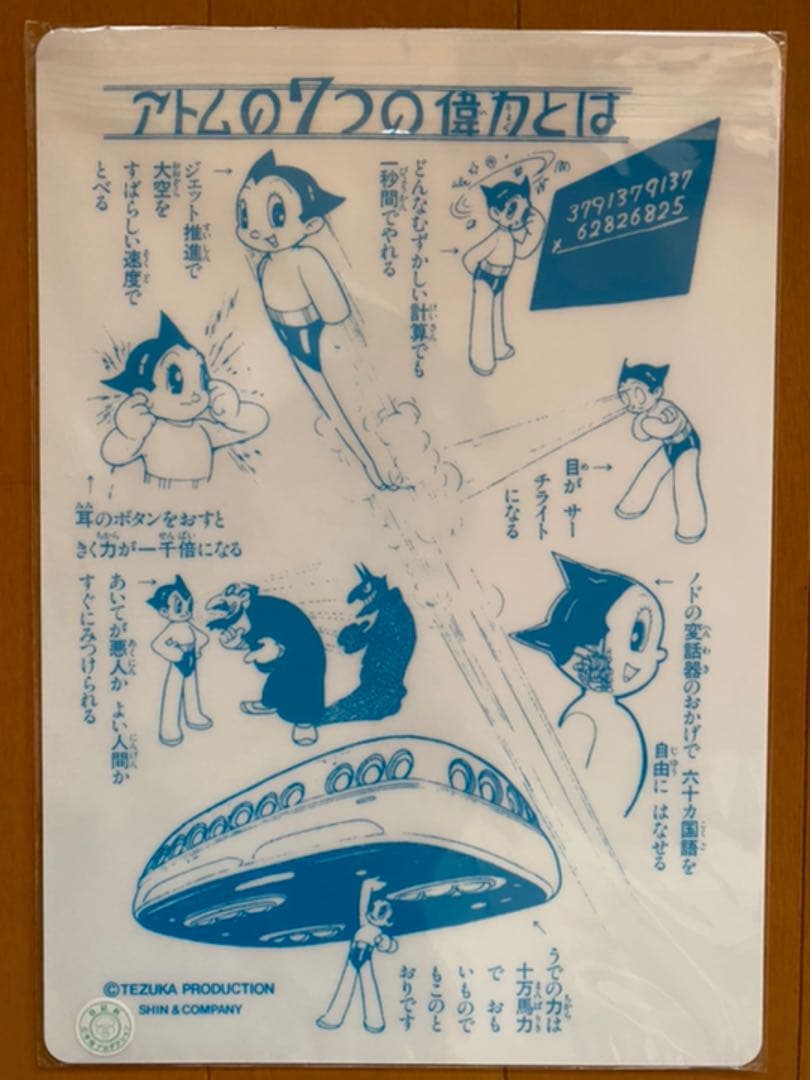 アトムの7つの偉力とは
どんなむずかしい計算でも
一秒間でやれる
3791379137
× 62826825
ジェット推進で
大空を
すばらしい速度で
とべる
目が サー
チライト
になる
耳のボタンをおすと
きく力が一千倍になる
ノドの変話器のおかげで 六十カ国語を
自由に はなせる
あいてが悪人か よい人間か
すぐにみつけられる
うでの力は
十万馬力
で おも
いもので
もこのと
おりです
©TEZUKA PRODUCTION
SHIN & COMPANY